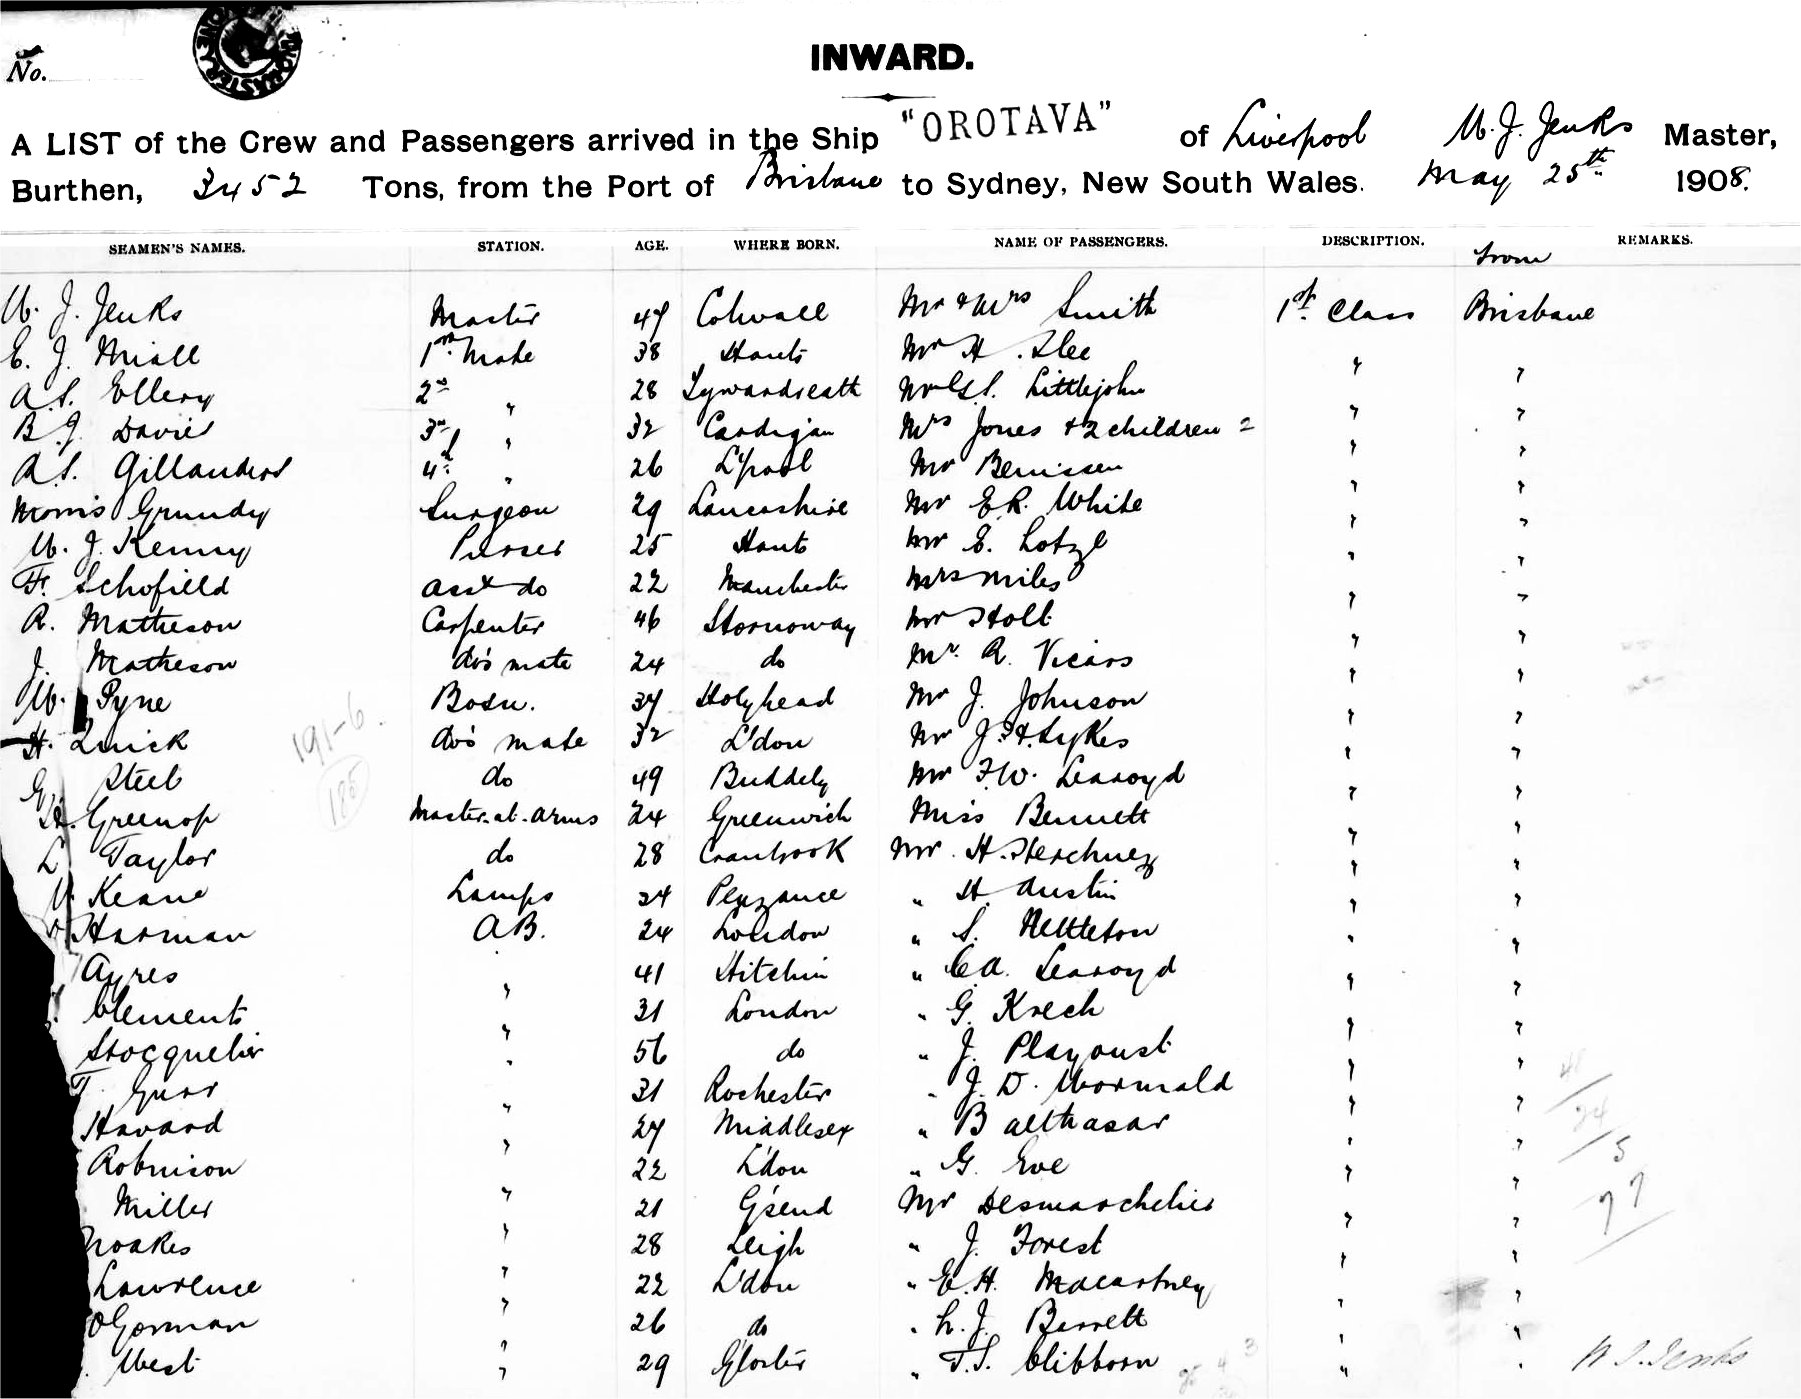 No.
INWARD.
A LIST of the Crew and Passengers arrived in the Ship "OROTAVA" of Liverpool W. J. Jenks Master,
Burthen, 3452 Tons, from the Port of Brisbane to Sydney, New South Wales. May 25th 1908.
SEAMEN'S NAMES. STATION. AGE. WHERE BORN. NAME OF PASSENGERS. DESCRIPTION. From REMARKS.
W. J. Jenks Master 47 Colwall Mr & Mrs Smith 1st Class Brisbane
E. J. Miall 1st Mate 38 Hants Mr H. Slee " "
A. S. Ellery 2nd " 28 Tywardreath Mr G. S. Littlejohn " "
B. J. Davies 3rd " 32 Cardigan Mrs Jones & 2 children = " "
A. S. Gillanders 4th " 26 L'pool Mr Benissen " "
Morris Grundy Surgeon 29 Lancashire Mr E R. White " "
W. J. Kenny Purser 25 Hants Mr E. Lotze " "
F. Schofield asst do 22 Manchester Mrs Miles " "
R. Matheson Carpenter 46 Stornoway Mr Holt " "
J. Matheson do's mate 24 do Mr. R. Vicars " "
W. Pyne Bosu. 37 Holyhead Mr J. Johnson " "
H. Quick do's mate 32 L'don Mr J. H. Sykes " "
G. Steel do 49 Buddely Mr F. W. Learoyd " "
H. Greenop Master-at-arms 24 Greenwich Miss Bennett " "
L Taylor do 28 Cranbrook Mr. H. " "
Keane Lamps 34 Penzance " H. Austin " "
Harman A.B. 24 London " S. Nettleton " "
Ayres " 41 Hitchin " C A. Learoyd " "
Clements " 31 London " G. Krech " "
Stocquelier " 56 do " J. Playoust " "
T. Gunr " 31 Rochester " J. D. Wormald " "
Havard " 27 Middlesex " Balthasar " "
Robinson " 22 L'don " G. Eve " "
Miller " 21 G'send Mr Desmarchelier " "
Noakes " 28 Leigh " J. Forest " "
Lawrence " 22 L'don " E. H. Macartney " "
O'Gorman " 26 do " L. J. Barrett " "
West " 29 Gloster " T. S. Clibborn " " W. J. Jenks
191-6.
188
48
24
5
77